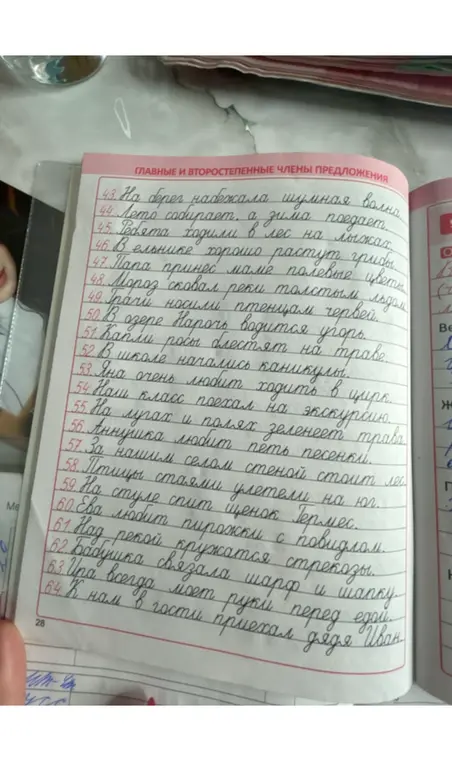 ГЛАВНЫЕ И ВТОРОСТЕПЕННЫЕ ЧЛЕНЫ ПРЕДЛОЖЕНИЯ
43. На берег набежала шумная волна
44. Лето собирает, а зима поедает.
45. Ребята ходили в лес на лыжах.
46. В ельнике хорошо растут грибы.
47. Папа принёс маме полевые цветы
48. Мороз сковал реки толстым льдом
49. Грачи носили птенцам червей.
50. В озере Нарочь водится угорь.
51. Капли росы блестят на траве.
52. В школе начались каникулы.
53. Яна очень любит ходить в цирк.
54. Наш класс поехал на экскурсию.
55. На лугах и полях зеленеет трава
56. Аннушка любит петь песенки.
57. За нашим селом стеной стоит лес
58. Птицы стаями улетели на юг.
59. На стуле спит щенок Гермес.
60. Ева любит пирожки с повидлом.
61. Над рекой кружатся стрекозы.
62. Бабушка связала шарф и шапку.
63. Ира всегда моет руки перед едой.
64. К нам в гости приехал дядя Иван
28